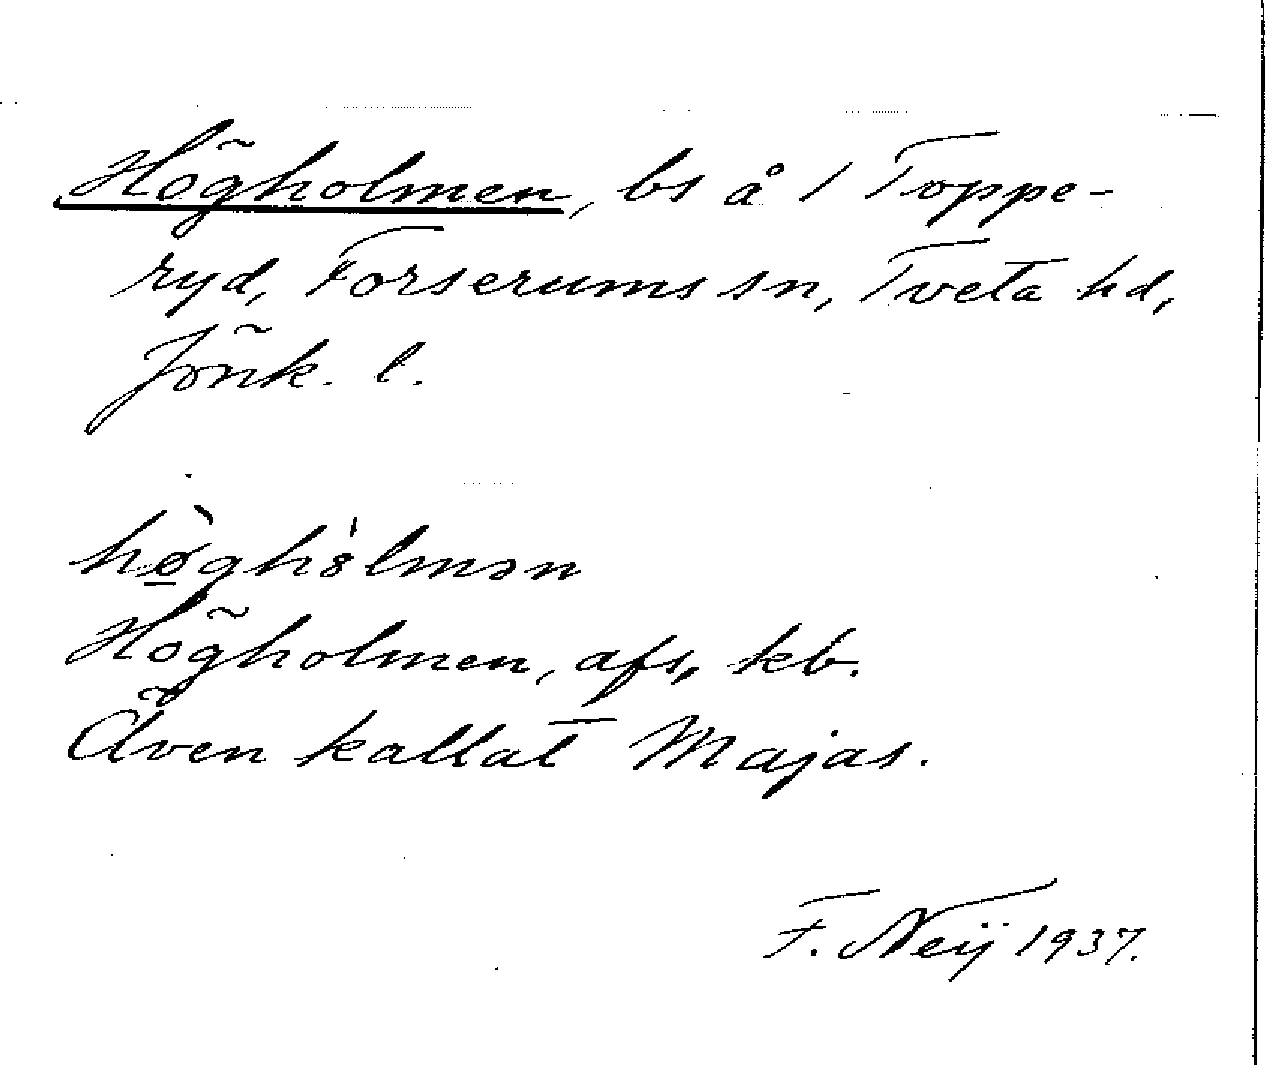 Högholmen, bs å 1 Toppe-
ryd, Forserums sn, Tveta hd,
Jönk. l.
hø̲̀ghòlmən
Högholmen, afs, kb.
Även kallat Majas.
F. Neij 1937.